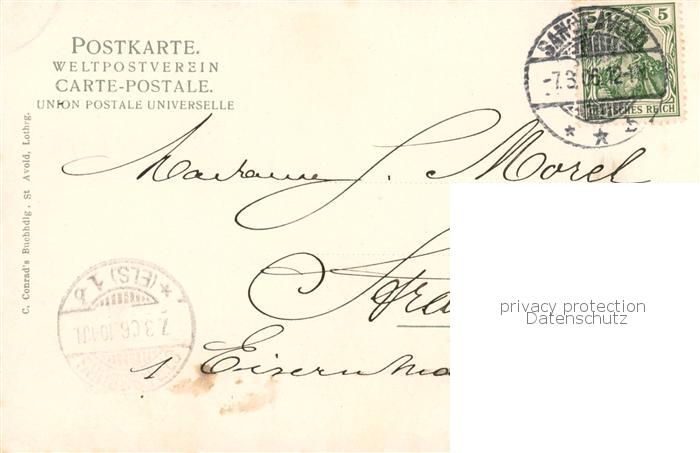 POSTKARTE.
WELTPOSTVEREIN
CARTE-POSTALE.
UNION POSTALE UNIVERSELLE
5
-7.3.06.12-1
REICH
Madame J. Morel
Stra
1 Eisernma
C. Conrad's Buchhdlg., St Avold, Lothrg.
*(ELS) 1 b
7.3.06.
privacy protection
Datenschutz